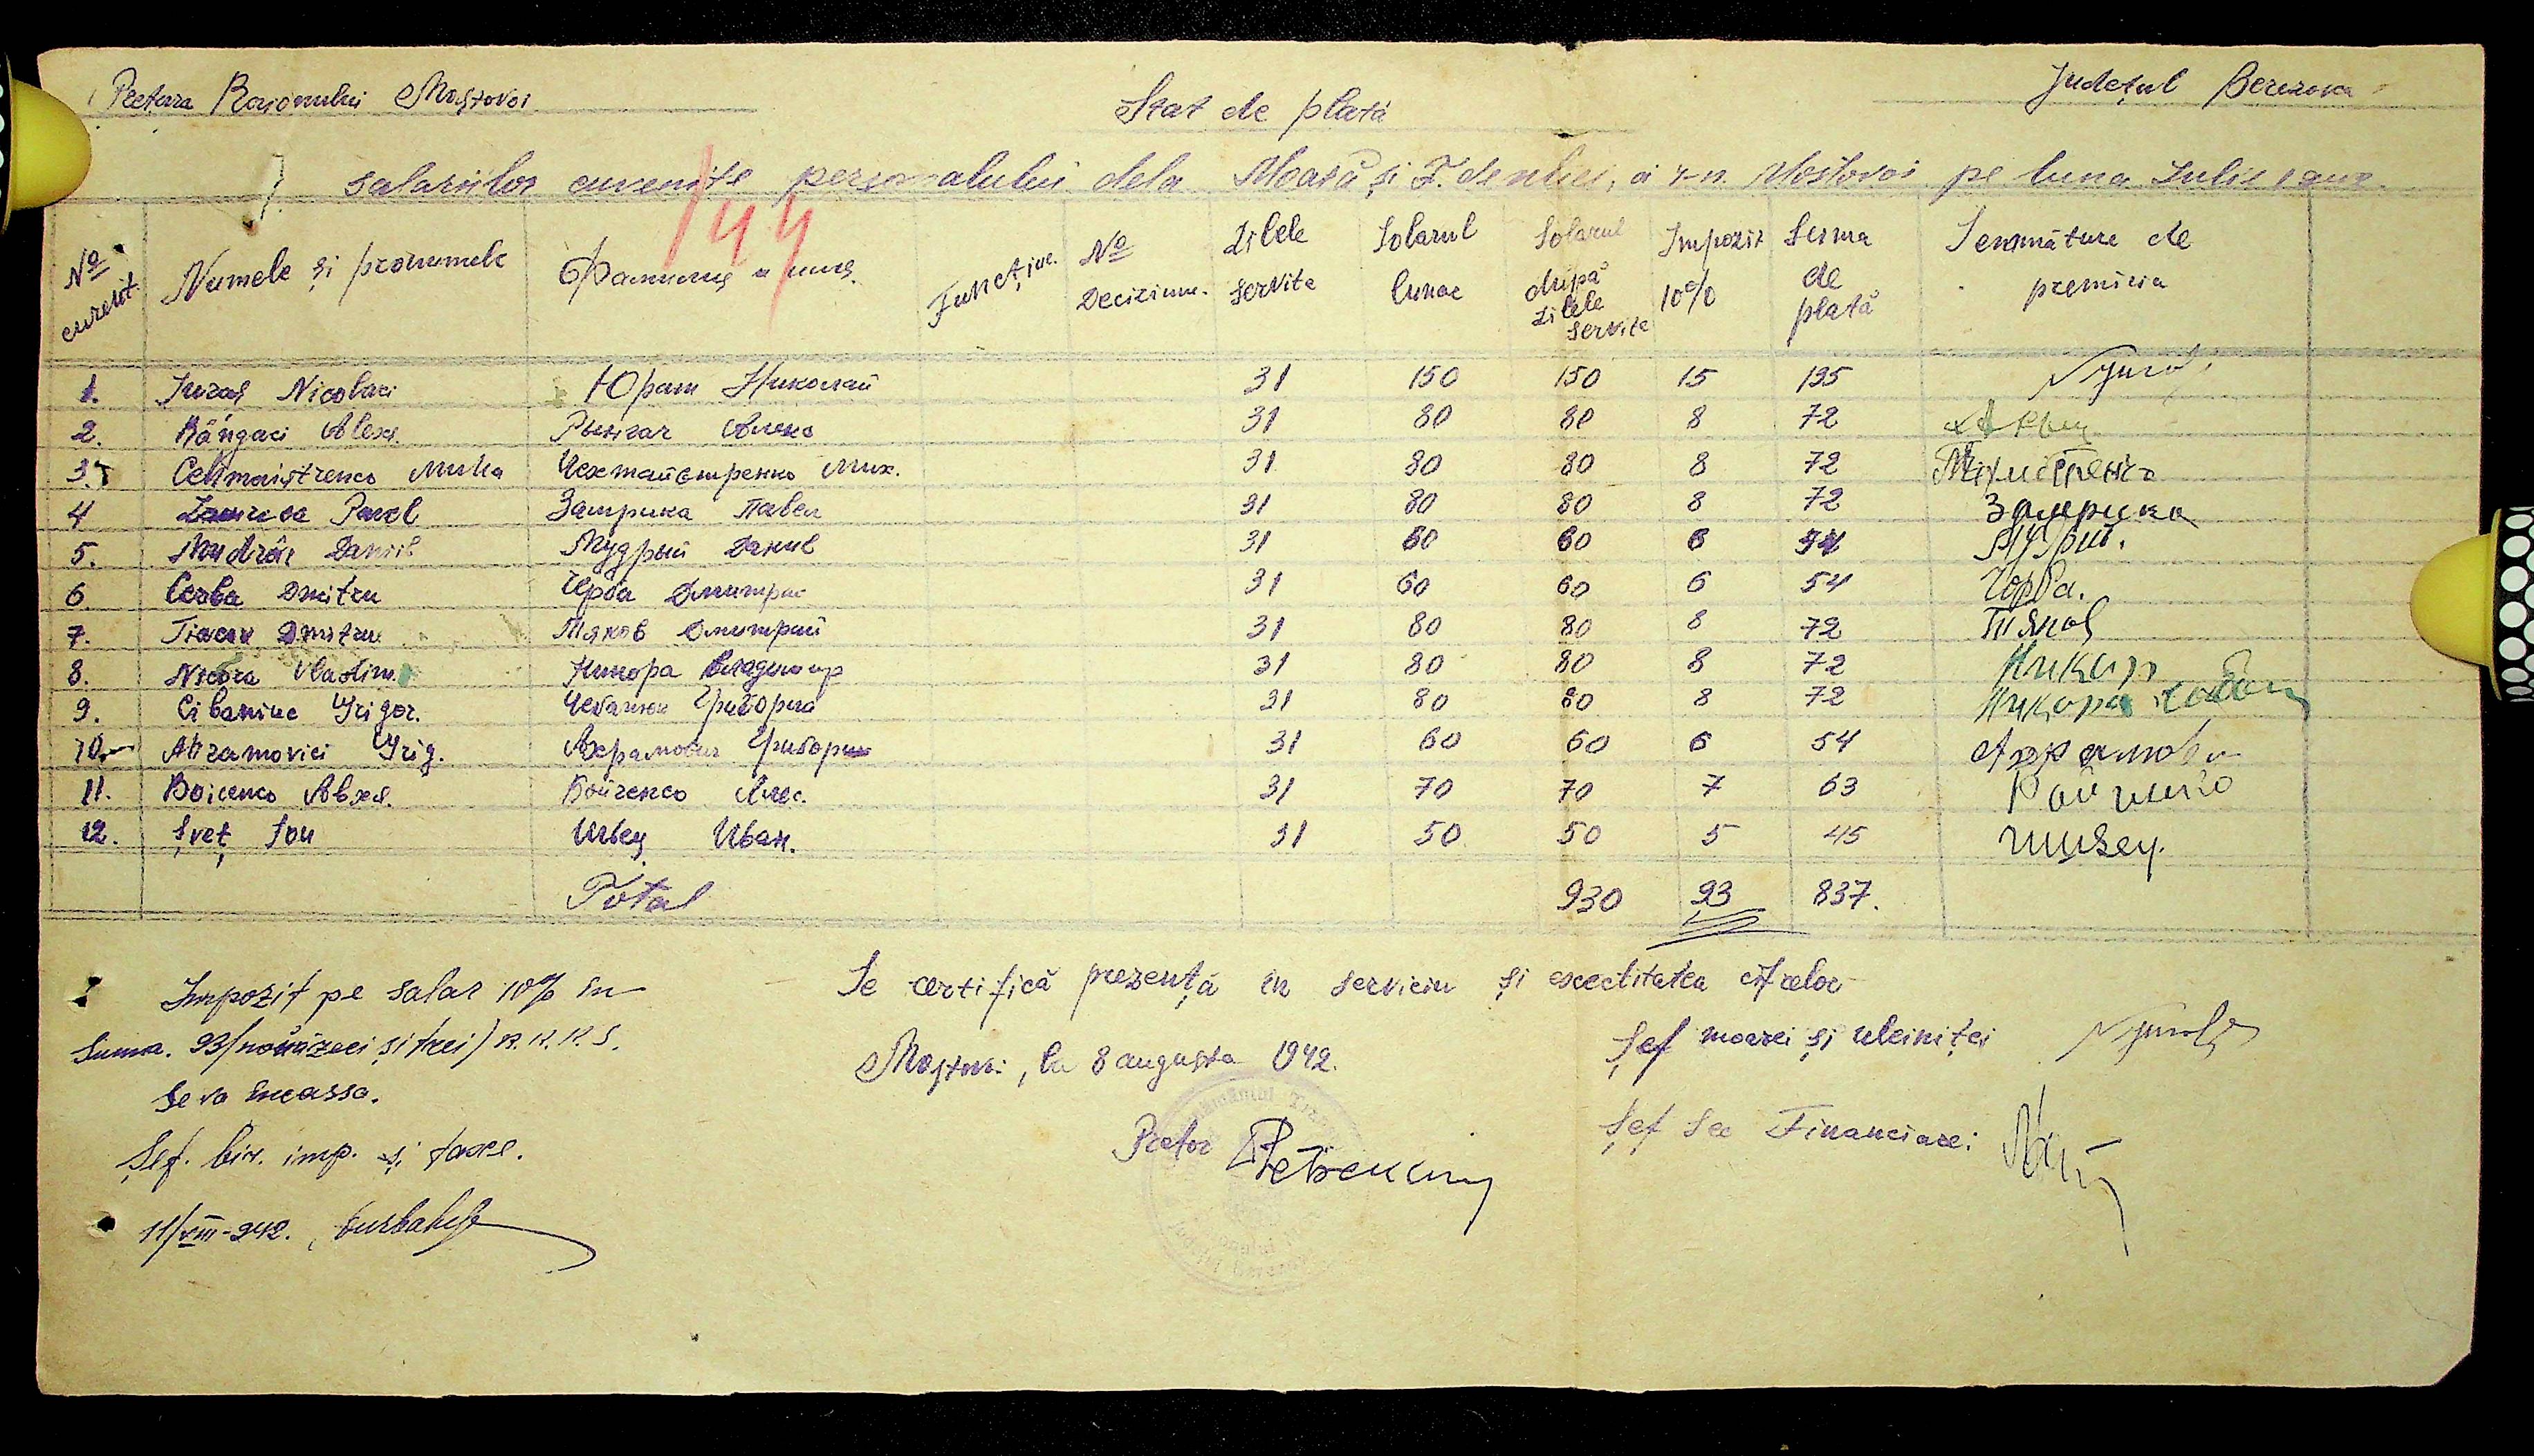 Pretura Raionului Mostovoi
Județul Berezovca
Stat de plată
144
salariilor cuvenite personalului dela Moară și F. de ulei, a r-n. Mostovoi pe luna Iulie 1942.
№ curent. Numele și pronumele Фамилия и имя. Funcțiune. № Deciziune. Zilele servite Solarul lunar Solarul după zilele servite Impozit 10% Suma de plată Semnăture de premirea
1. Juraș Nicolai Юраш Николай 31 150 150 15 135
2. Rângaci Alexs. Рынгач Алекс 31 80 80 8 72
3. Cehmaistrenco Miha Чехмайстренко Мих. 31 80 80 8 72
4 Zamrica Pavel Замрика Павел 31 80 80 8 72 Замрика
5. Mudrâi Daniil Мудрый Данил 31 60 60 6 54
6 Cerba Dmitru Церба Дмитрие 31 60 60 6 54 Чорба.
7. Tiacov Dmitru Тяков Дмитрий 31 80 80 8 72 Тяков
8. Nicora Vladim. Никора Владимир 31 80 80 8 72 Никор
9. Cibaniuc Grigor. Чебанюк Григория 31 80 80 8 72 Никора
10. Abramovici Grig. Абрамович Григорие 31 60 60 6 54
11. Boicenco Alexs. Бойченсо Алес. 31 70 70 7 63
12. Șveț Ion Швец Иван. 31 50 50 5 45 Швец.
Total 930 93 837.
Impozit pe salar 10% în
suma. 93/nouăzeci și trei) R.K.K.S.
se va încassa.
Șef. bir. imp. și taxe.
11/VIII-942.
Se certifică prezență în serviciu și exectitatea cifrelor
Mostovoi, la 8 augusta 1942.
Pretor
Șef moarei și uleiniței
Șef Sec Financiare: